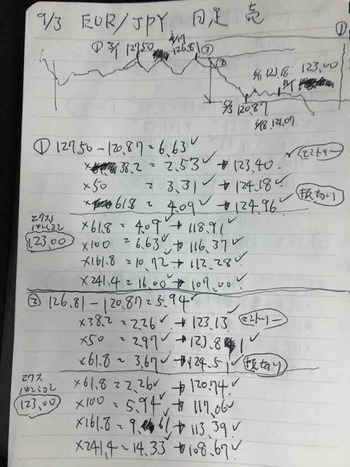 9/3 EUR/JPY 日足 売
① 3/1 127.50
126.81 ②
123.18
123.00
120.87
124.09
① 127.50-120.87=6.63✓
×38.2=2.53✓→123.40✓ エントリー
×50 =3.31✓→124.18✓
×61.8=4.09✓→124.96✓ 損切り
エクス
123.00
×61.8=4.09✓→118.91✓
×100=6.63✓→116.37✓
×161.8=10.72✓→112.28✓
×241.4=16.00✓→107.00✓
② 126.81-120.87=5.94✓
×38.2=2.26✓→123.13✓ エントリー
×50=2.97✓→123.81✓
×61.8=3.67✓→124.51✓ 損切り
エクス
123.00
×61.8=2.26✓→120.74✓
×100=5.94✓→117.06✓
×161.8=9.61✓→113.39✓
×241.4=14.33✓→108.67✓